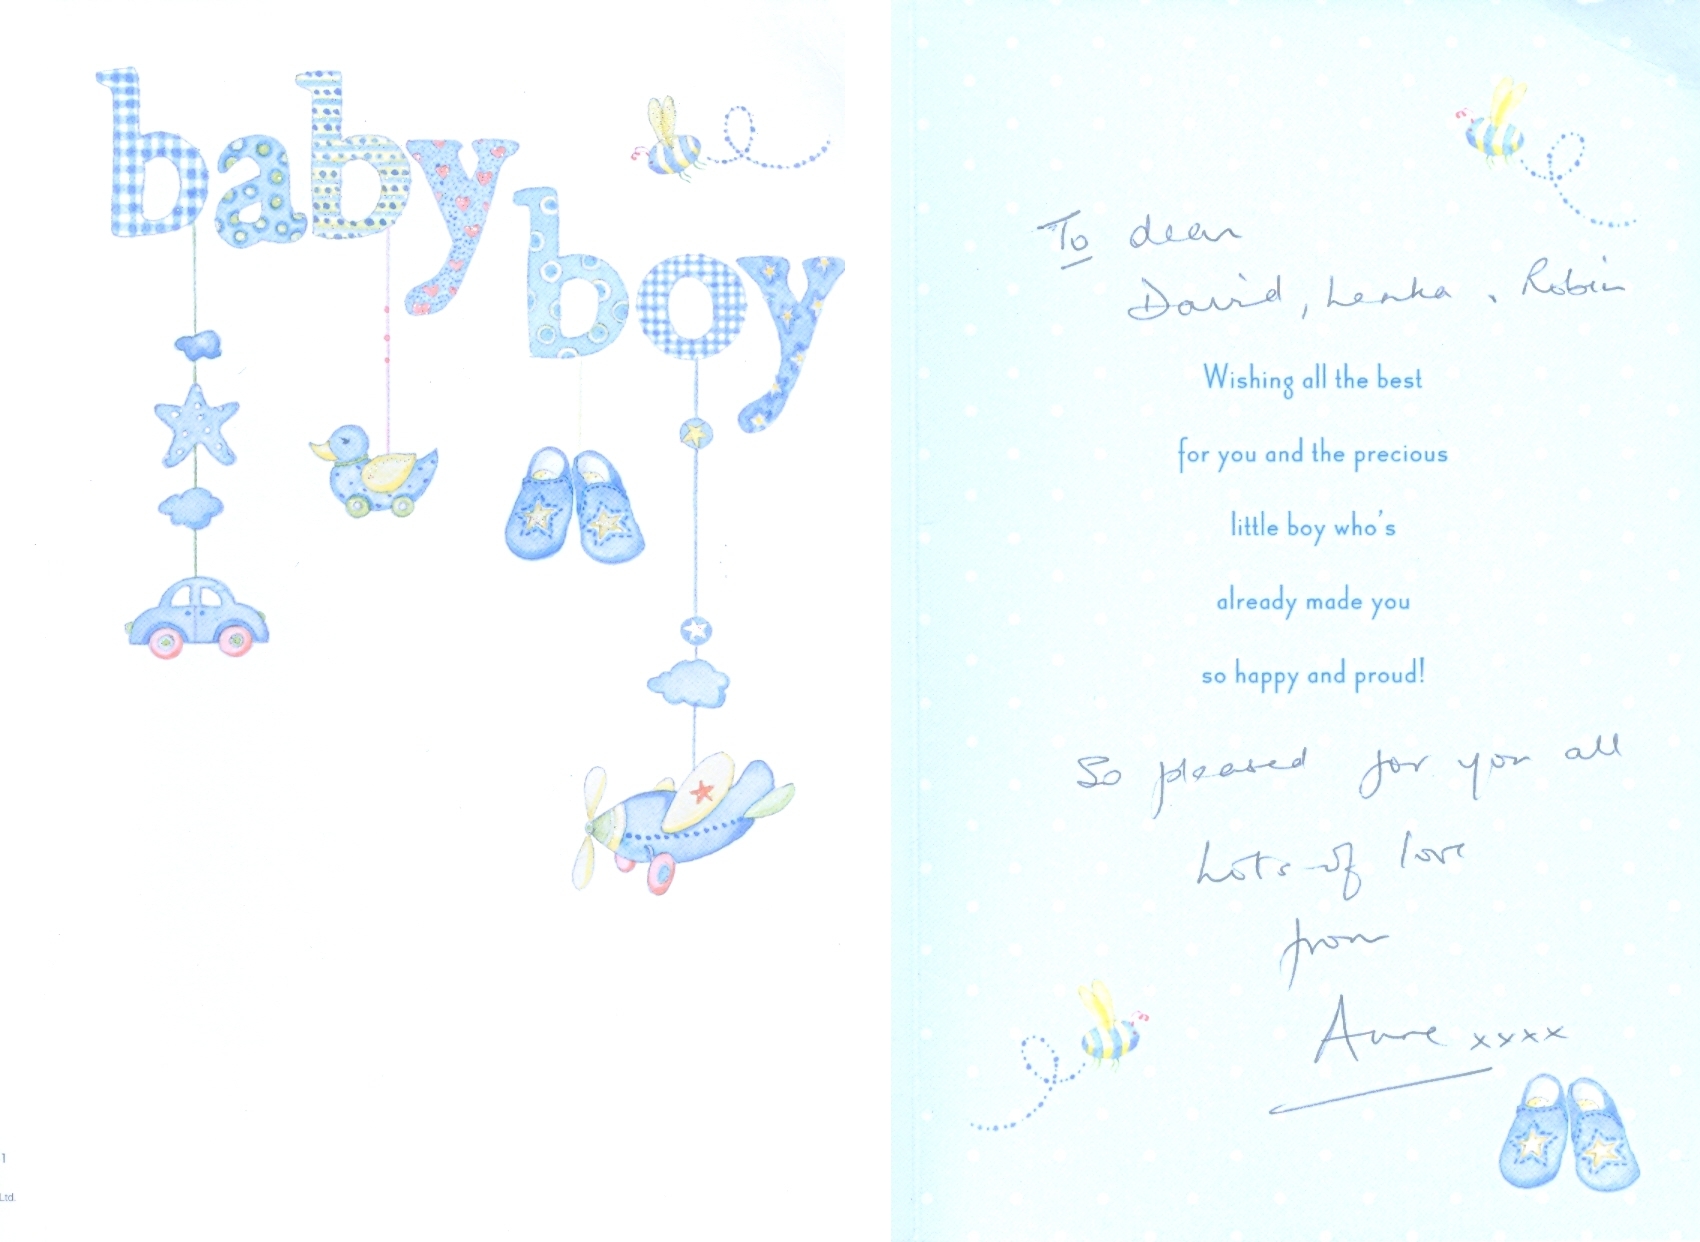 baby
boy
1
Ltd.
To dear
David, Lenka, Robin
Wishing all the best
for you and the precious
little boy who's
already made you
so happy and proud!
So pleased for you all
Lots of love
from
Anne xxxx